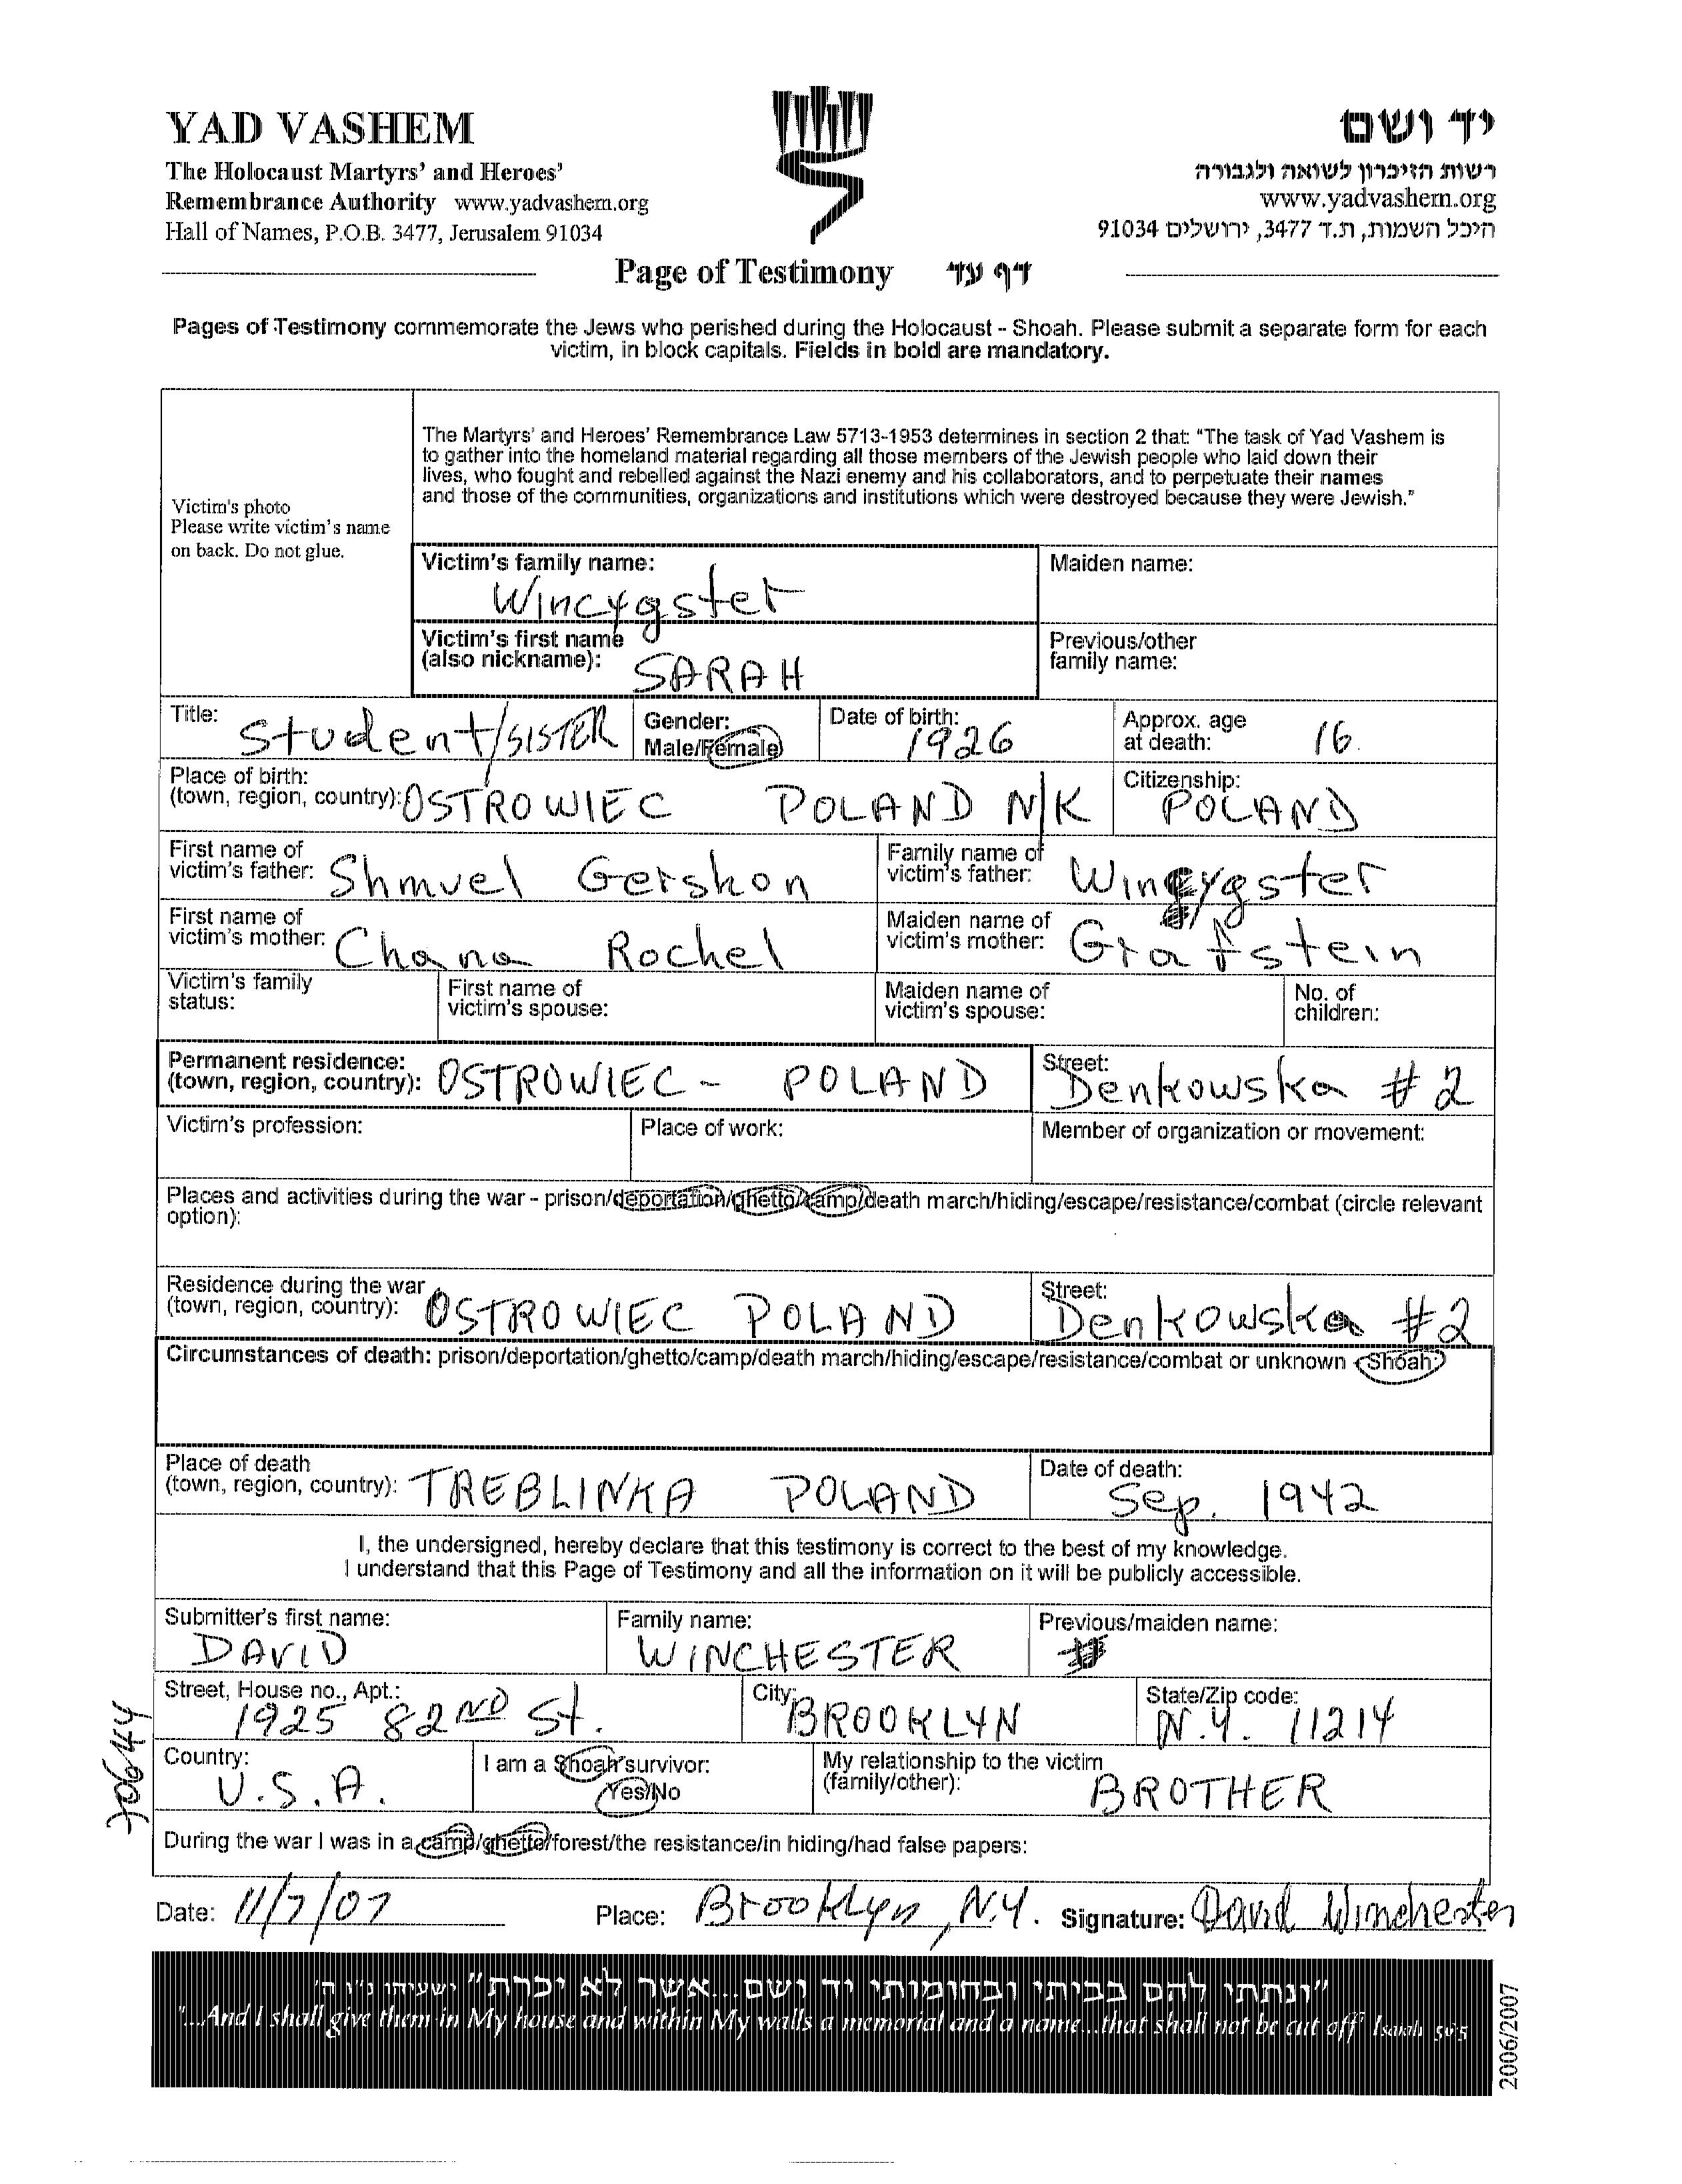 YAD VASHEM
The Holocaust Martyrs' and Heroes'
Remembrance Authority www.yadvashem.org
Hall of Names, P.O.B. 3477, Jerusalem 91034
יד ושם
רשות הזיכרון לשואה ולגבורה
www.yadvashem.org
היכל השמות, ת.ד 3477, ירושלים 91034
Page of Testimony דף עד
Pages of Testimony commemorate the Jews who perished during the Holocaust - Shoah. Please submit a separate form for each
victim, in block capitals. Fields in bold are mandatory.
Victim's photo
Please write victim's name
on back. Do not glue.
The Martyrs' and Heroes' Remembrance Law 5713-1953 determines in section 2 that: "The task of Yad Vashem is
to gather into the homeland material regarding all those members of the Jewish people who laid down their
lives, who fought and rebelled against the Nazi enemy and his collaborators, and to perpetuate their names
and those of the communities, organizations and institutions which were destroyed because they were Jewish."
Victim's family name:
Wincygster
Maiden name:
Victim's first name
(also nickname): SARAH
Previous/other
family name:
Title: Student/SISTER
Gender:
Male/Female
Date of birth:
1926
Approx. age
at death: 16
Place of birth:
(town, region, country): OSTROWIEC POLAND N/K
Citizenship:
POLAND
First name of
victim's father: Shmuel Gershon
Family name of
victim's father: Wincygster
First name of
victim's mother: Chana Rochel
Maiden name of
victim's mother: Grafstein
Victim's family
status:
First name of
victim's spouse:
Maiden name of
victim's spouse:
No. of
children:
Permanent residence:
(town, region, country): OSTROWIEC - POLAND
Street:
Denkowska # 2
Victim's profession:
Place of work:
Member of organization or movement:
Places and activities during the war - prison/deportation/ghetto/camp/death march/hiding/escape/resistance/combat (circle relevant
option):
Residence during the war
(town, region, country): OSTROWIEC POLAND
Street:
Denkowska #2
Circumstances of death: prison/deportation/ghetto/camp/death march/hiding/escape/resistance/combat or unknown - Shoah:
Place of death
(town, region, country): TREBLINKA POLAND
Date of death:
Sep. 1942
I, the undersigned, hereby declare that this testimony is correct to the best of my knowledge.
I understand that this Page of Testimony and all the information on it will be publicly accessible.
Submitter's first name:
DAVID
Family name:
WINCHESTER
Previous/maiden name:
Street, House no., Apt.:
1925 82ND St.
City:
BROOKLYN
State/Zip code:
N.Y. 11214
Country:
U.S.A.
I am a Shoah survivor:
Yes/No
My relationship to the victim
(family/other): BROTHER
During the war I was in a camp/ghetto/forest/the resistance/in hiding/had false papers:
Date: 11/7/07 Place: Brooklyn, N.Y. Signature: David Winchester
"ונתתי להם בביתי ובחומותי יד ושם...אשר לא יכרת" ישעיהו נ"ו ה'
"...And I shall give them in My house and within My walls a memorial and a name...that shall not be cut off" Isaiah 56:5
2006/2007